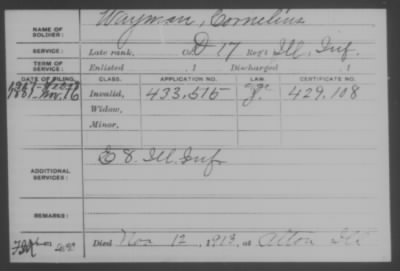 NAME OF SOLDIER: Wayman, Cornelius
SERVICE: Late rank, Co. D 17 Reg't Ill. Inf.
TERM OF SERVICE: Enlisted , 1 Discharged , 1
DATE OF FILING. CLASS. APPLICATION NO. LAW. CERTIFICATE NO.
Invalid, 433,515 429,108
Widow,
Minor,
ADDITIONAL SERVICES: E 8. Ill. Inf.
REMARKS:
Died Nov. 12, 1913, at Alton Ill